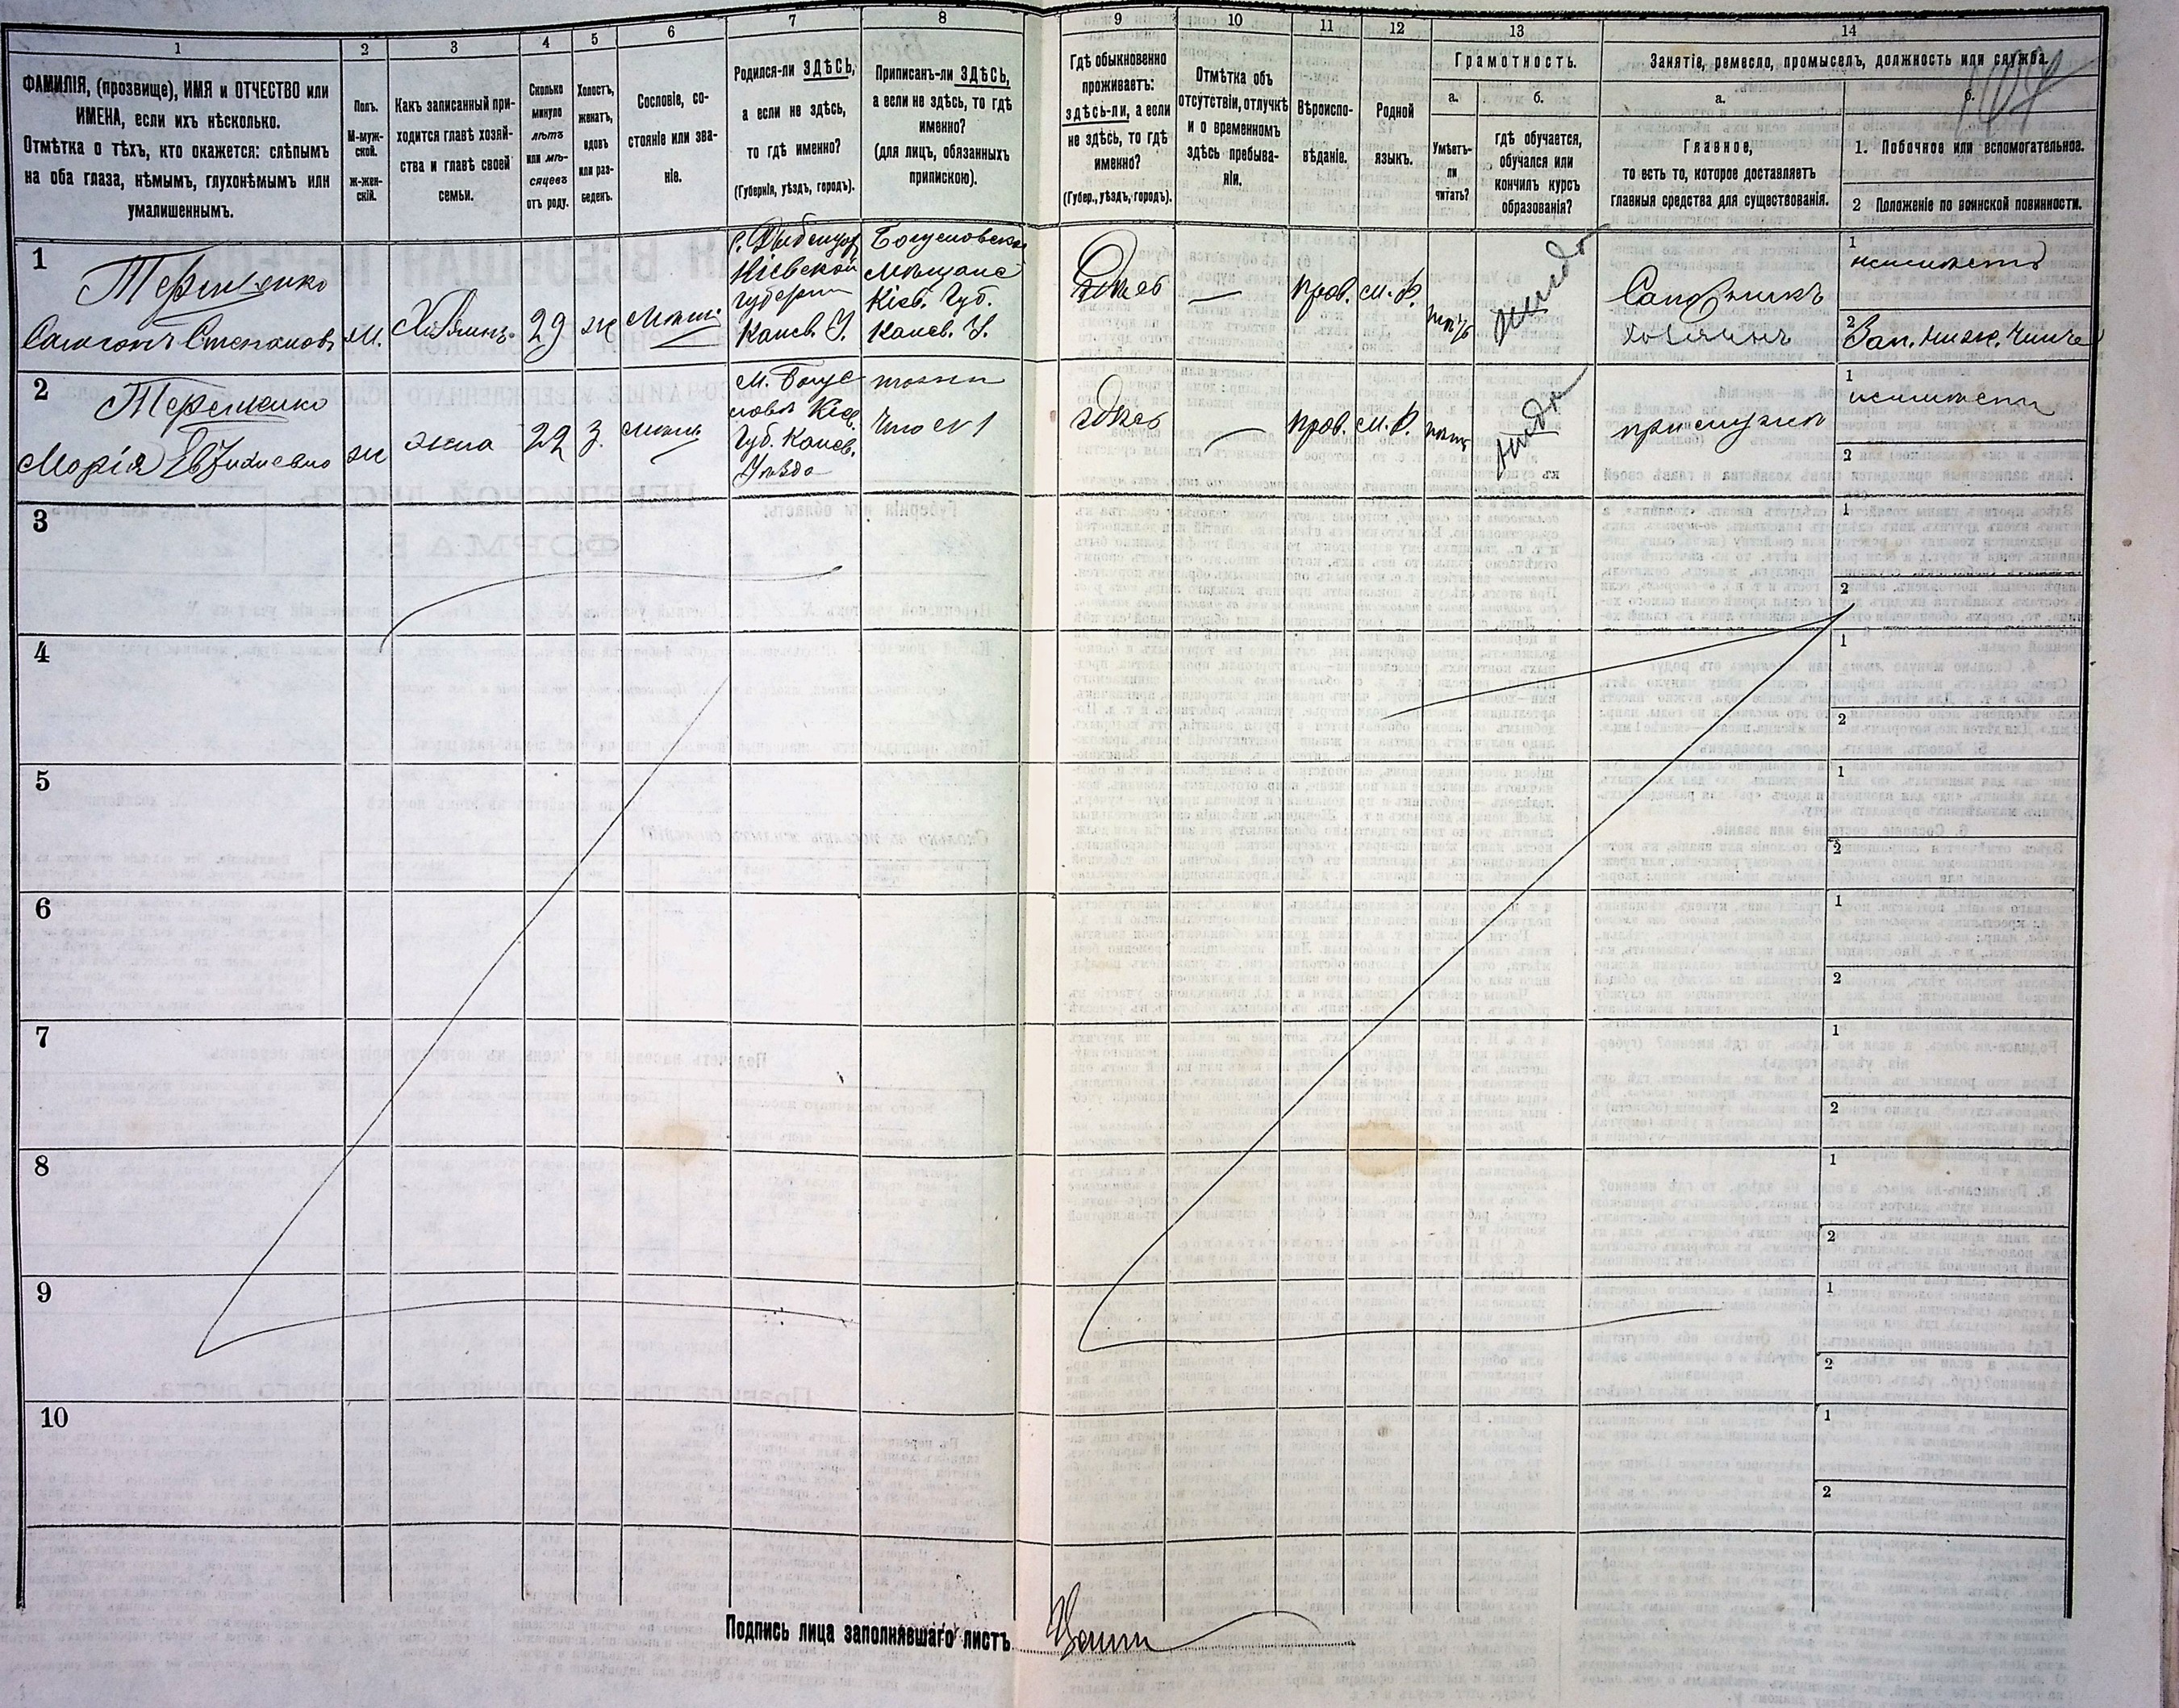 1
2
3
4
5
6
7
8
9
10
11
12
13
14
ФАМИЛІЯ, (прозвище), ИМЯ и ОТЧЕСТВО или
ИМЕНА, если ихъ нѣсколько.
Отмѣтка о тѣхъ, кто окажется: слѣпымъ
на оба глаза, нѣмымъ, глухонѣмымъ или
умалишеннымъ.
Полъ.
М-муж-
ской.
Ж-жен-
скій.
Какъ записанный при-
ходится главѣ хозяй-
ства и главѣ своей
семьи.
Сколько
минуло
лѣтъ
или мѣ-
сяцевъ
отъ роду.
Холостъ,
женатъ,
вдовъ
или раз-
веденъ.
Сословіе, со-
стояніе или зва-
ніе.
Родился-ли ЗДѢСЬ,
а если не здѣсь,
то гдѣ именно?
(Губернія, уѣздъ, городъ).
Приписанъ-ли ЗДѢСЬ,
а если не здѣсь, то гдѣ
именно?
(для лицъ, обязанныхъ
припискою).
Гдѣ обыкновенно
проживаетъ:
здѣсь-ли, а если
не здѣсь, то гдѣ
именно?
(Губер., уѣздъ, городъ).
Отмѣтка объ
отсутствіи, отлучкѣ
и о временномъ
здѣсь пребыва-
ніи.
Вѣроиспо-
вѣданіе.
Родной
языкъ.
Грамотность.
а.
Умѣетъ-
ли
читать?
б.
гдѣ обучается,
обучался или
кончилъ курсъ
образованія?
Занятіе, ремесло, промыселъ, должность или служба.
а.
Главное,
то есть то, которое доставляетъ
главныя средства для существованія.
б.
1. Побочное или вспомогательное.
2 Положеніе по воинской повинности.
1
Терещенко
Самсонъ Степановъ
М.
Хозяинъ
29
ж
Мѣщ.
Кіевской
губерніи
Канев. У.
Богуславск
Мѣщанс
Кіев. Губ.
Канев. У.
Здѣсь
—
прав.
м. р.
нигдѣ
Сапожникъ
хозяинъ
1
2 Зап. ниж. чинъ
2
Терещенко
Марія
ж
жена
22
З.
мѣщ.
м. Богус
лавъ Кіев.
Губ. Канев.
Уѣзда
тоже
что и 1
здѣсь
—
прав.
м. р.
нигдѣ
при мужѣ
1
2
3
1
2
4
1
2
5
1
2
6
1
2
7
1
2
8
1
2
9
1
2
10
1
2
Подпись лица заполнявшаго листъ